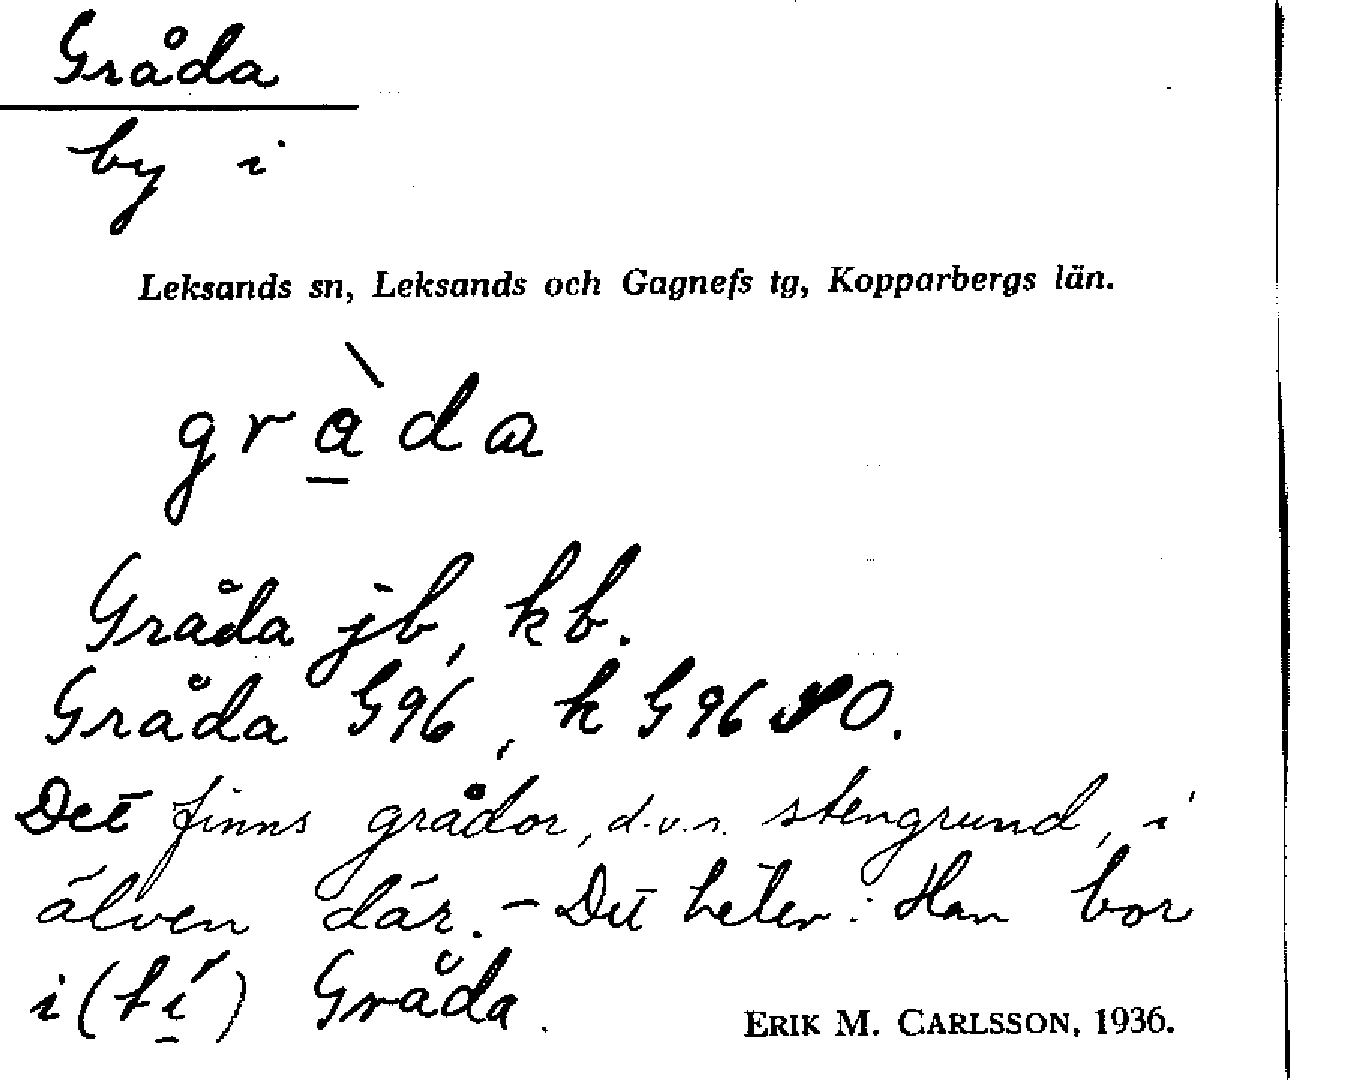 Gråda
by i
Leksands sn, Leksands och Gagnefs tg, Kopparbergs län.
gràda
Gråda jb, kb.
Gråda G96, h G96 SO.
Det finns grådor, d.v.s. stengrund, i
älven där. – Det heter: Han bor
i (tí) Gråda.
ERIK M. CARLSSON, 1936.